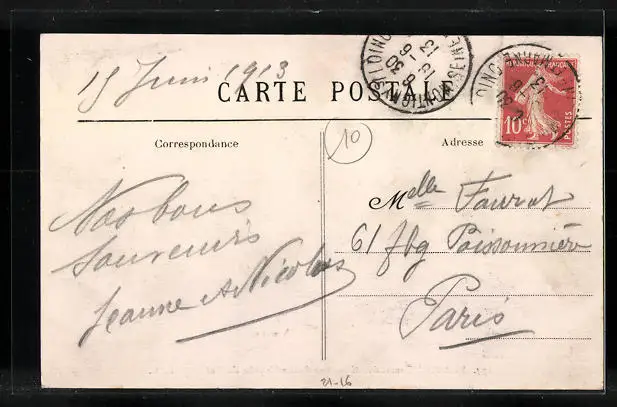 15 Juin 1913
CARTE POSTALE
RÉPUBLIQUE FRANÇAISE
10c
POSTES
10
Correspondance
Adresse
Nos bons
souvenirs
Jeanne et Nicolas
Melle Fournat
61 fbg Poissonnière
Paris
21-16